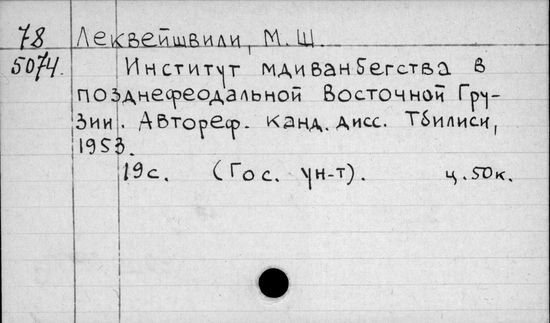 78 Леквейшвили, М. Ш.
5074. Институт мдиванбегства в
позднефеодальной Восточной Гру-
зии. Автореф. канд. дисс. Тбилиси,
1953.
19 с. (Гос. ун-т). ц. 50 к.